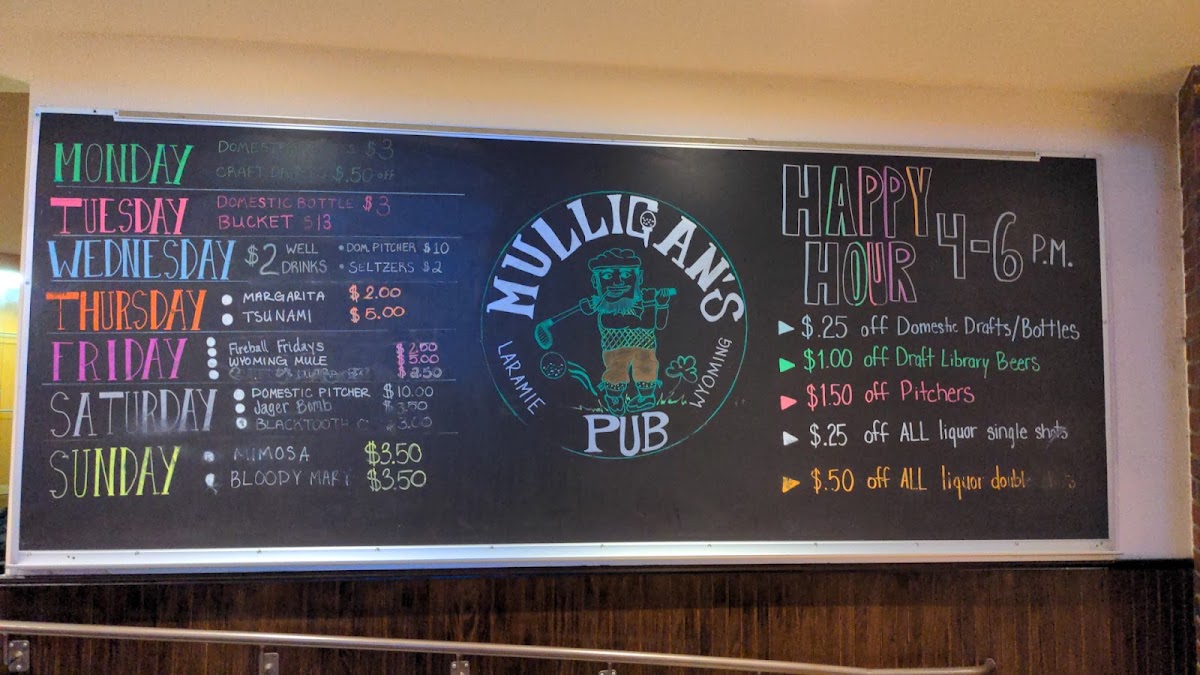 MONDAY
DOMESTIC $3
CRAFT $.50 off
TUESDAY
DOMESTIC BOTTLE $3
BUCKET $13
WEDNESDAY
$2 WELL DRINKS
• DOM PITCHER $10
• SELTZERS $2
THURSDAY
MARGARITA $2.00
TSUNAMI $5.00
FRIDAY
Fireball Fridays $2.50
WYOMING MULE $5.00
$2.50
SATURDAY
DOMESTIC PITCHER $10.00
Jager Bomb $3.50
BLACKTOOTH $3.00
SUNDAY
MIMOSA $3.50
BLOODY MARY $3.50
MULLIGAN'S
LARAMIE
WYOMING
PUB
HAPPY
HOUR
4-6 P.M.
$.25 off Domestic Drafts/Bottles
$1.00 off Draft Library Beers
$1.50 off Pitchers
$.25 off ALL liquor single shots
$.50 off ALL liquor